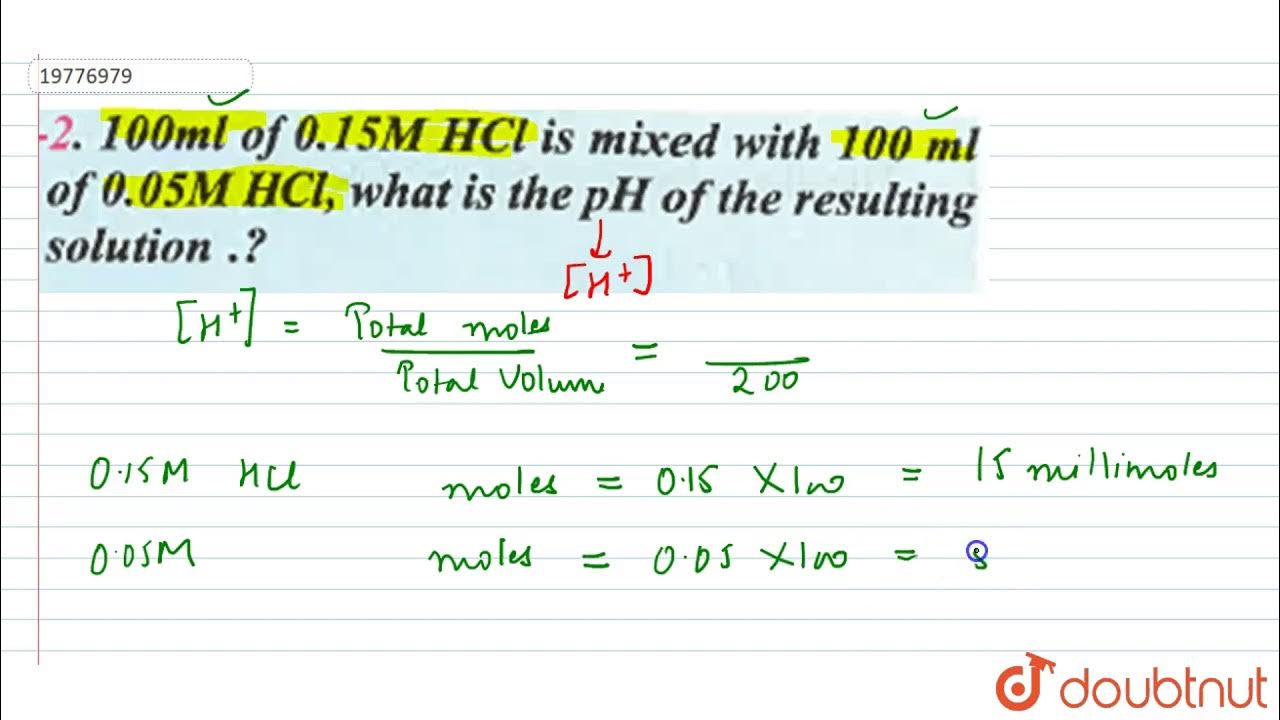 19776979
-2. 100ml of 0.15M HCl is mixed with 100 ml
of 0.05M HCl, what is the pH of the resulting
solution .?
↓
[H+]
[H+] = Total moles / Total Volum = / 200
0.15M HCl moles = 0.15 × 100 = 15 millimoles
0.05M moles = 0.05 × 100 =
doubtnut